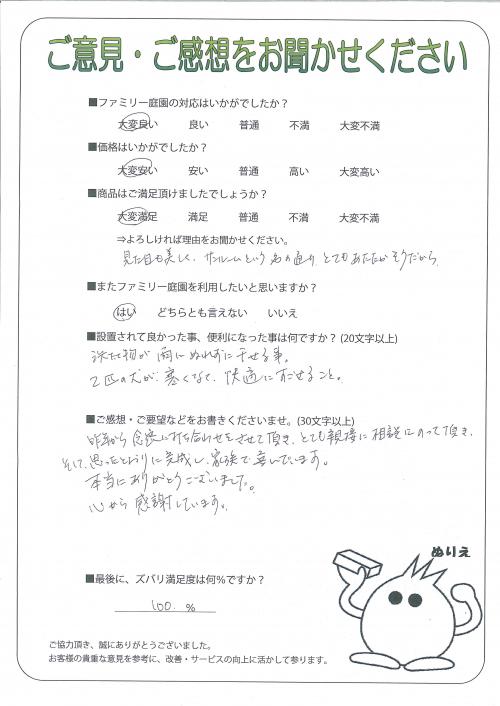 ご意見・ご感想をお聞かせください
■ファミリー庭園の対応はいかがでしたか？
大変良い 良い 普通 不満 大変不満
■価格はいかがでしたか？
大変安い 安い 普通 高い 大変高い
■商品はご満足頂けましたでしょうか？
大変満足 満足 普通 不満 大変不満
⇒よろしければ理由をお聞かせください。
見た目も美しく、サンルームという名の通り、とてもあたたかそうだから。
■またファミリー庭園を利用したいと思いますか？
はい どちらとも言えない いいえ
■設置されて良かった事、便利になった事は何ですか？(20文字以上)
洗たく物が雨にぬれずに干せる事。
2匹の犬が、寒くなく、快適にすごせること。
■ご感想・ご要望などをお書きくださいませ。(30文字以上)
昨年から念密に打ち合わせをさせて頂き、とても親接に相談にのって頂き、
そして、思ったとおりに完成し、家族で喜んでいます。
本当にありがとうございました。
心から感謝しています。
ぬりえ
■最後に、ズバリ満足度は何％ですか？
100. %
ご協力頂き、誠にありがとうございました。
お客様の貴重な意見を参考に、改善・サービスの向上に活かして参ります。